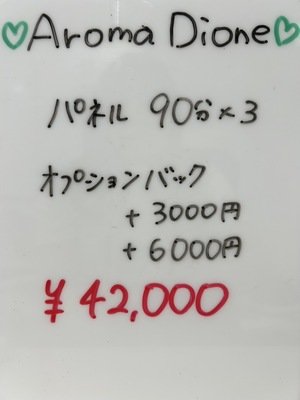 Aroma Dione
パネル 90分×3
オプションバック
+3000円
+6000円
¥42,000